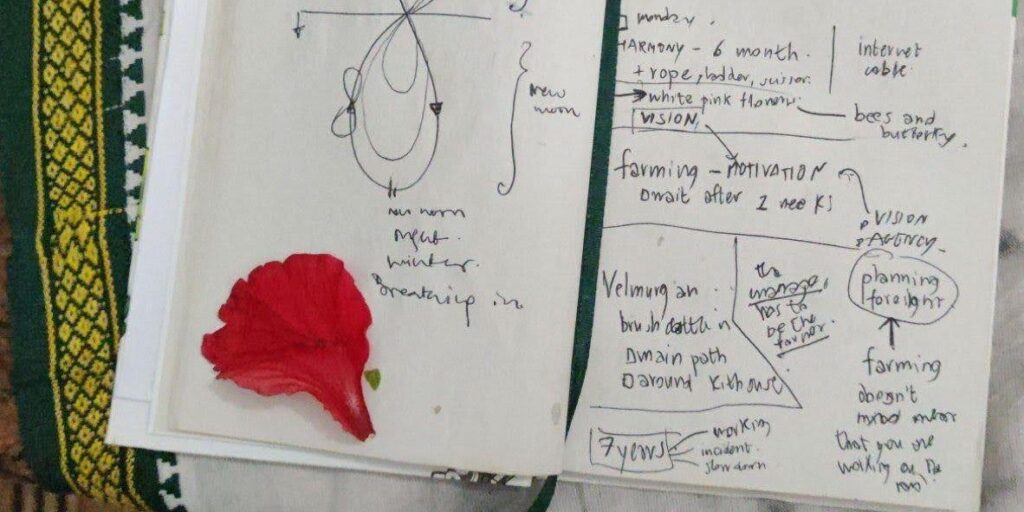 new
moon
new moon
night.
winter.
Breathing in
monday.
HARMONY - 6 month.
+ rope, ladder, scissor.
white pink flowers.
VISION
internet
cable.
bees and
butterfly.
farming - MOTIVATION
after 2 weeks
VISION
AGENCY
planning
foresight
Velmurgan
brush cattle in
main path
around kit house
the
manager
has to
be the
farmer.
farming
doesn't
mean
that you are
working on the
7 years
working
incident.
slow down